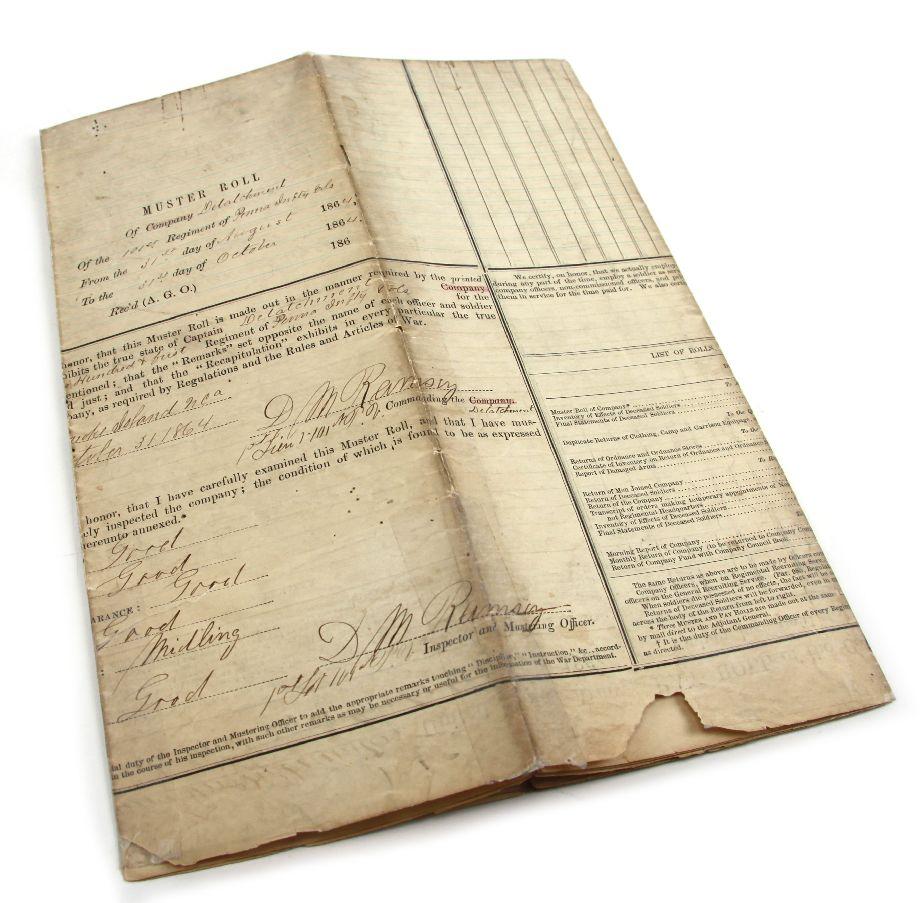 MUSTER ROLL
Of Company Detatchment
Of the 101st Regiment of Penna Infty Vols
From the 31st day of August 1864,
To the 31st day of October 1864.
Rec'd (A. G. O.) 186
honor, that this Muster Roll is made out in the manner required by the printed
ibits the true state of Captain Detatchment Company
Hundred & first Regiment of Penna Infty Vols for the
entioned; that the "Remarks" set opposite the name of each officer and soldier
d just; and that the "Recapitulation" exhibits in every particular the true
pany, as required by Regulations and the Rules and Articles of War.
Island N.Ca.
31 1864
D M Ramsey
Commanding the Company.
Detatchment
honor, that I have carefully examined this Muster Roll, and that I have mus-
ely inspected the company; the condition of which is found to be as expressed
ereunto annexed.*
Good
Good
Good
ARANCE:
Good
Midling
Good
D M Ramsey
Inspector and Mustering Officer.
ial duty of the Inspector and Mustering Officer to add the appropriate remarks touching "Discipline," "Instruction," &c., accord-
in the course of his inspection, with such other remarks as may be necessary or useful for the information of the War Department.
We certify, on honor, that we actually employ
during any part of the time, employ a soldier as ser
company officers, non-commissioned officers, and
them in service for the time paid for. We also cer
LIST OF ROLLS
Muster Roll of Company*
Inventory of Effects of Deceased Soldiers
Final Statements of Deceased Soldiers
To the Q
Duplicate Returns of Clothing, Camp and Garrison Equipage
To the
Returns of Ordnance and Ordnance Stores
Certificate of Inventory on Return of Ordnance and Ordnance
Report of Damaged Arms
Return of Men Joined Company
Return of Deceased Soldiers
Return of the Company
Transcript of orders making temporary appointments of
not Regimental Headquarters
Inventory of Effects of Deceased Soldiers
Final Statements of Deceased Soldiers
Morning Report of Company
Monthly Return of Company (to be returned to Company Com
Return of Company Fund with Company Council Book
The same Returns as above are to be made by
Company Officers, when on Regimental Recruiting Serv
officers on the General Recruiting Service. (Par. 985, Reg
When soldiers die possessed of no effects, the fact will be
Returns of Deceased Soldiers will be forwarded, even in
across the body of the Return from left to right.
* Three Muster and Pay Rolls are made out at the same
by mail direct to the Adjutant General.
† It is the duty of the Commanding Officer of every Regi
as directed.